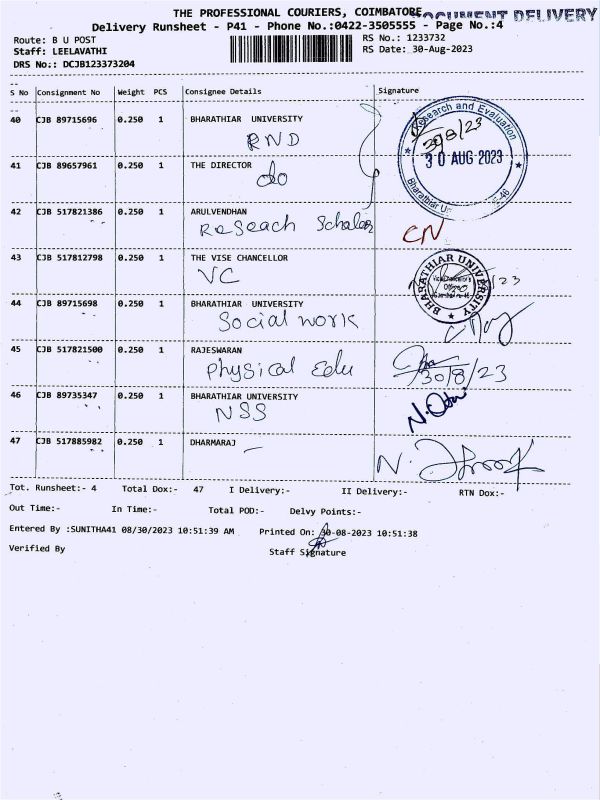 THE PROFESSIONAL COURIERS, COIMBATORE
DOCUMENT DELIVERY
Delivery Runsheet - P41 - Phone No.:0422-3505555 - Page No.:4
Route: B U POST RS No.: 1233732
Staff: LEELAVATHI RS Date: 30-Aug-2023
DRS No.: DCJB123373204
S No Consignment No Weight PCS Consignee Details Signature
40 CJB 89715696 0.250 1 BHARATHIAR UNIVERSITY
RND
Research and Evaluation
30/8/23
30 AUG 2023
41 CJB 89657961 0.250 1 THE DIRECTOR
do
Bharathiar
42 CJB 517821386 0.250 1 ARULVENDHAN
Reseach Scholar
CN
43 CJB 517812798 0.250 1 THE VISE CHANCELLOR
VC
BHARATHIAR UNIVERSITY
44 CJB 89715698 0.250 1 BHARATHIAR UNIVERSITY
Social work
45 CJB 517821500 0.250 1 RAJESWARAN
Physical Edu
30/8/23
46 CJB 89735347 0.250 1 BHARATHIAR UNIVERSITY
NSS
47 CJB 517885982 0.250 1 DHARMARAJ
Tot. Runsheet:- 4 Total Dox:- 47 I Delivery:- II Delivery:- RTN Dox:-
Out Time:- In Time:- Total POD:- Delvy Points:-
Entered By :SUNITHA41 08/30/2023 10:51:39 AM Printed On: 30-08-2023 10:51:38
Verified By Staff Signature